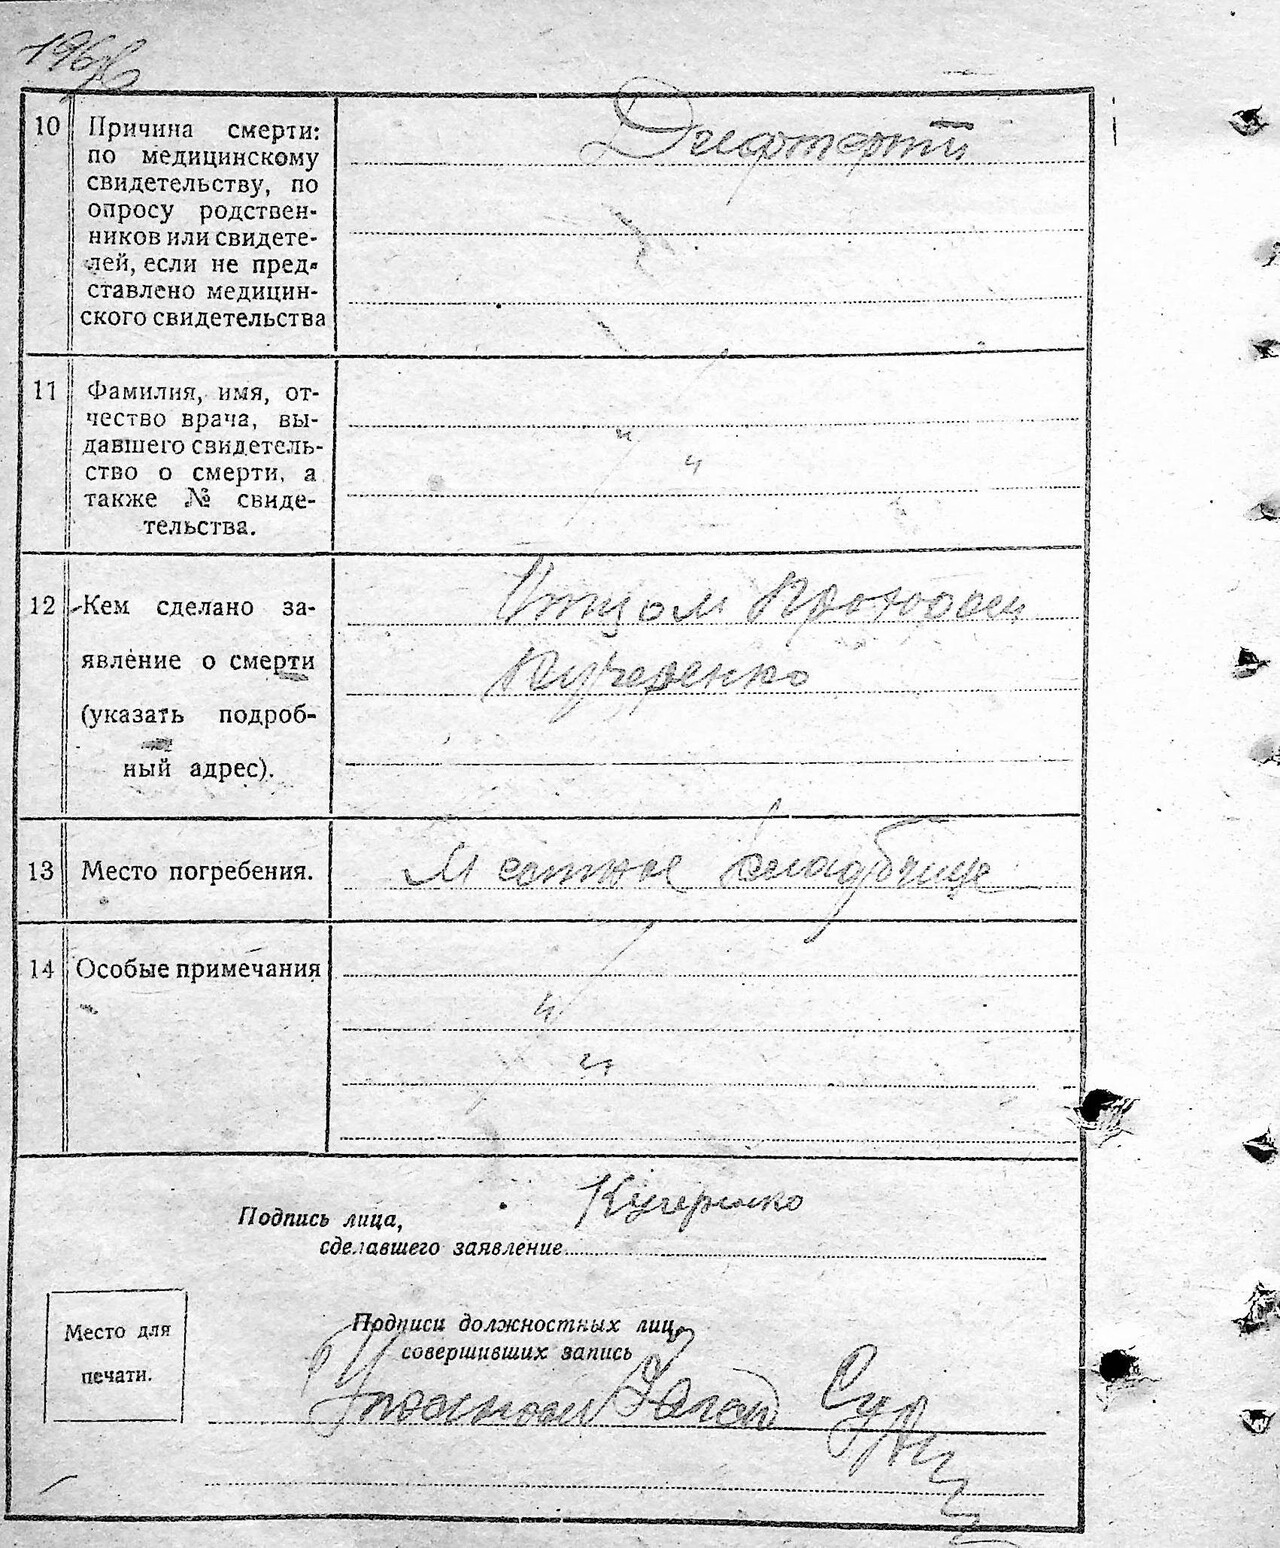 10
Причина смерти:
по медицинскому
свидетельству, по
опросу родствен-
ников или свидете-
лей, если не пред-
ставлено медицин-
ского свидетельства
11
Фамилия, имя, от-
чество врача, вы-
давшего свидетель-
ство о смерти, а
также № свиде-
тельства.
" "
12
Кем сделано за-
явление о смерти
(указать подроб-
ный адрес).
Отцом
Кучеренко
13
Место погребения.
Местное кладбище
14
Особые примечания
" "
Подпись лица,
сделавшего заявление
Кучеренко
Место для
печати.
Подписи должностных лиц,
совершивших запись